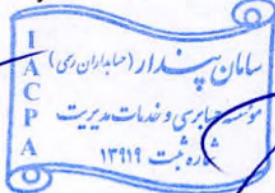 IACPA
سامان پندار (حسابداران رسمی)
موسسه حسابرسی و خدمات مدیریت
شماره ثبت ۱۳۹۱۹